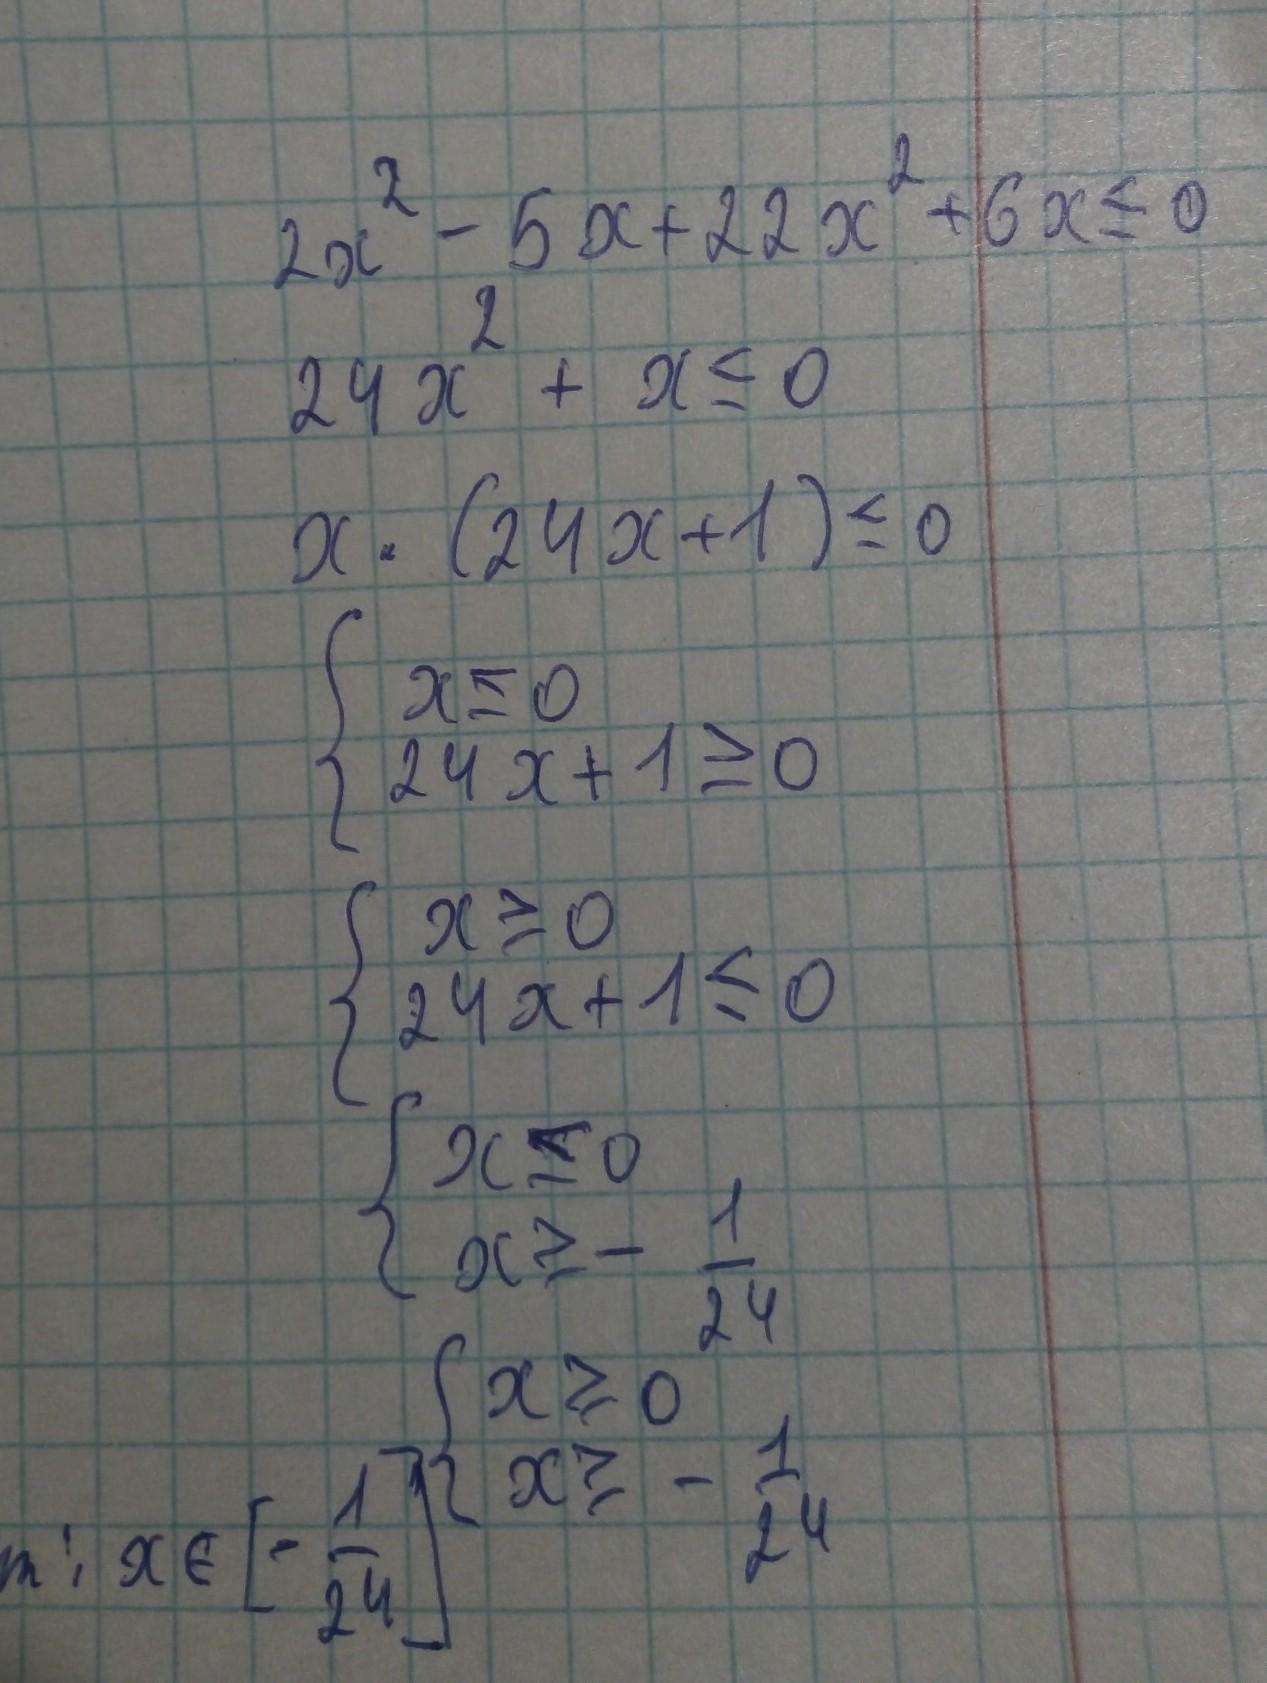 2x² - 5x + 22x² + 6x ≤ 0
24x² + x ≤ 0
x · (24x + 1) ≤ 0
{ x ≤ 0
24x + 1 ≥ 0
{ x ≥ 0
24x + 1 ≤ 0
{ x ≤ 0
x ≥ - 1/24
{ x ≥ 0
x ≥ - 1/24
т: x ∈ [- 1/24]